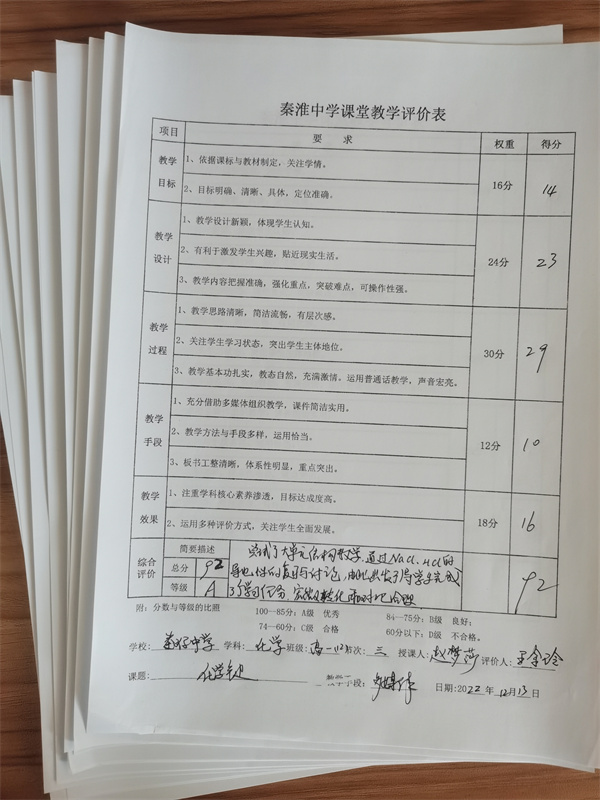 秦淮中学课堂教学评价表
项目 要 求 权重 得分
教学目标 1、依据课标与教材制定，关注学情。 16分 14
2、目标明确、清晰、具体，定位准确。
教学设计 1、教学设计新颖，体现学生认知。 24分 23
2、有利于激发学生兴趣，贴近现实生活。
3、教学内容把握准确，强化重点，突破难点，可操作性强。
教学过程 1、教学思路清晰，简洁流畅，有层次感。 30分 29
2、关注学生学习状态，突出学生主体地位。
3、教学基本功扎实，教态自然，充满激情。运用普通话教学，声音宏亮。
教学手段 1、充分借助多媒体组织教学，课件简洁实用。 12分 10
2、教学方法与手段多样，运用恰当。
3、板书工整清晰，体系性明显，重点突出。
教学效果 1、注重学科核心素养渗透，目标达成度高。 18分 16
2、运用多种评价方式，关注学生全面发展。
综合评价 简要描述 尝试了大单元结构教学，通过NaCl、HCl的
总分 92 导电性的复习与讨论，学生完成 92
等级 A 了学习任务
附：分数与等级的比照 100—85分：A级 优秀 84—75分：B级 良好；
74—60分：C级 合格 60分以下：D级 不合格。
学校： 中学 学科：化学 班级：高一 班次：三 授课人：赵梦莎 评价人：王金玲
课题：化学键 教学手段：多媒体 日期：2022年12月13日